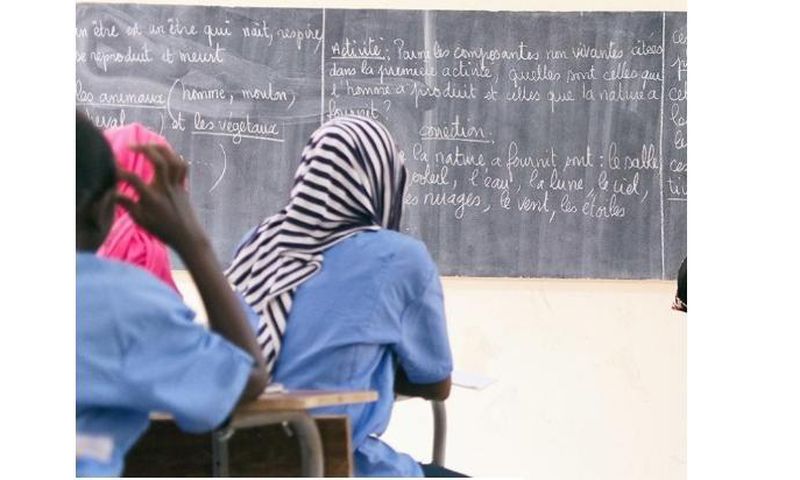 n être est un être qui naît, respire,
se reproduit et meurt
les animaux (homme, mouton,
cheval ) et les végétaux
...)
Activité : Parmi les composantes non vivantes citées
dans la première activité, quelles sont celles que
l'homme a produit et celles que la nature a
fournit ?
correction :
la nature a fournit sont : le sable
soleil, l'eau, la lune, le ciel,
les nuages, le vent, les étoiles